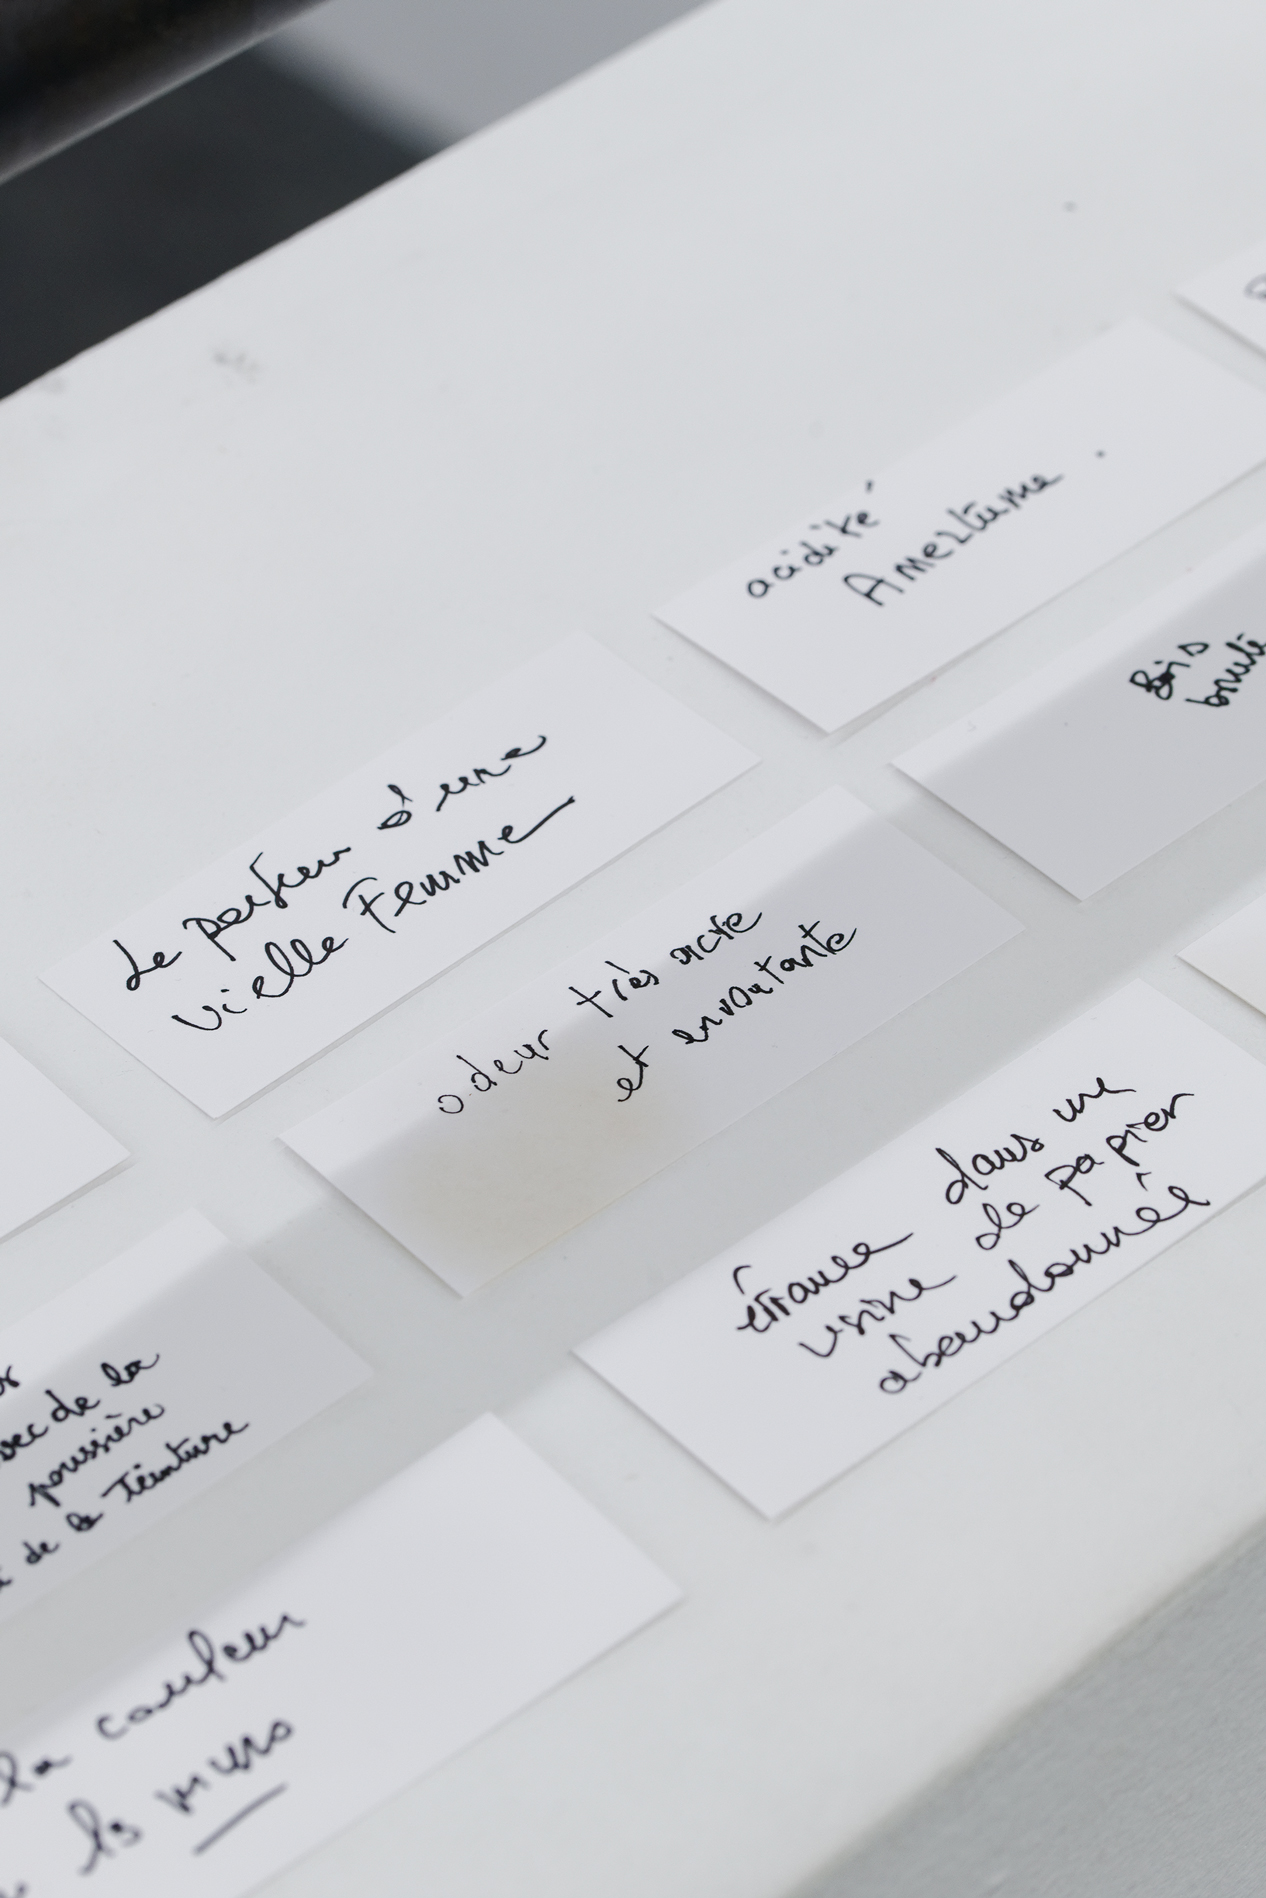 acidité
Amertume.
Bois
brulé
Le parfum d'une
vielle Femme
odeur très acre
et envoutante
étrance dans une
usine de papier
abandonnée
de la
poussière
de la Teinture
la couleur
murs